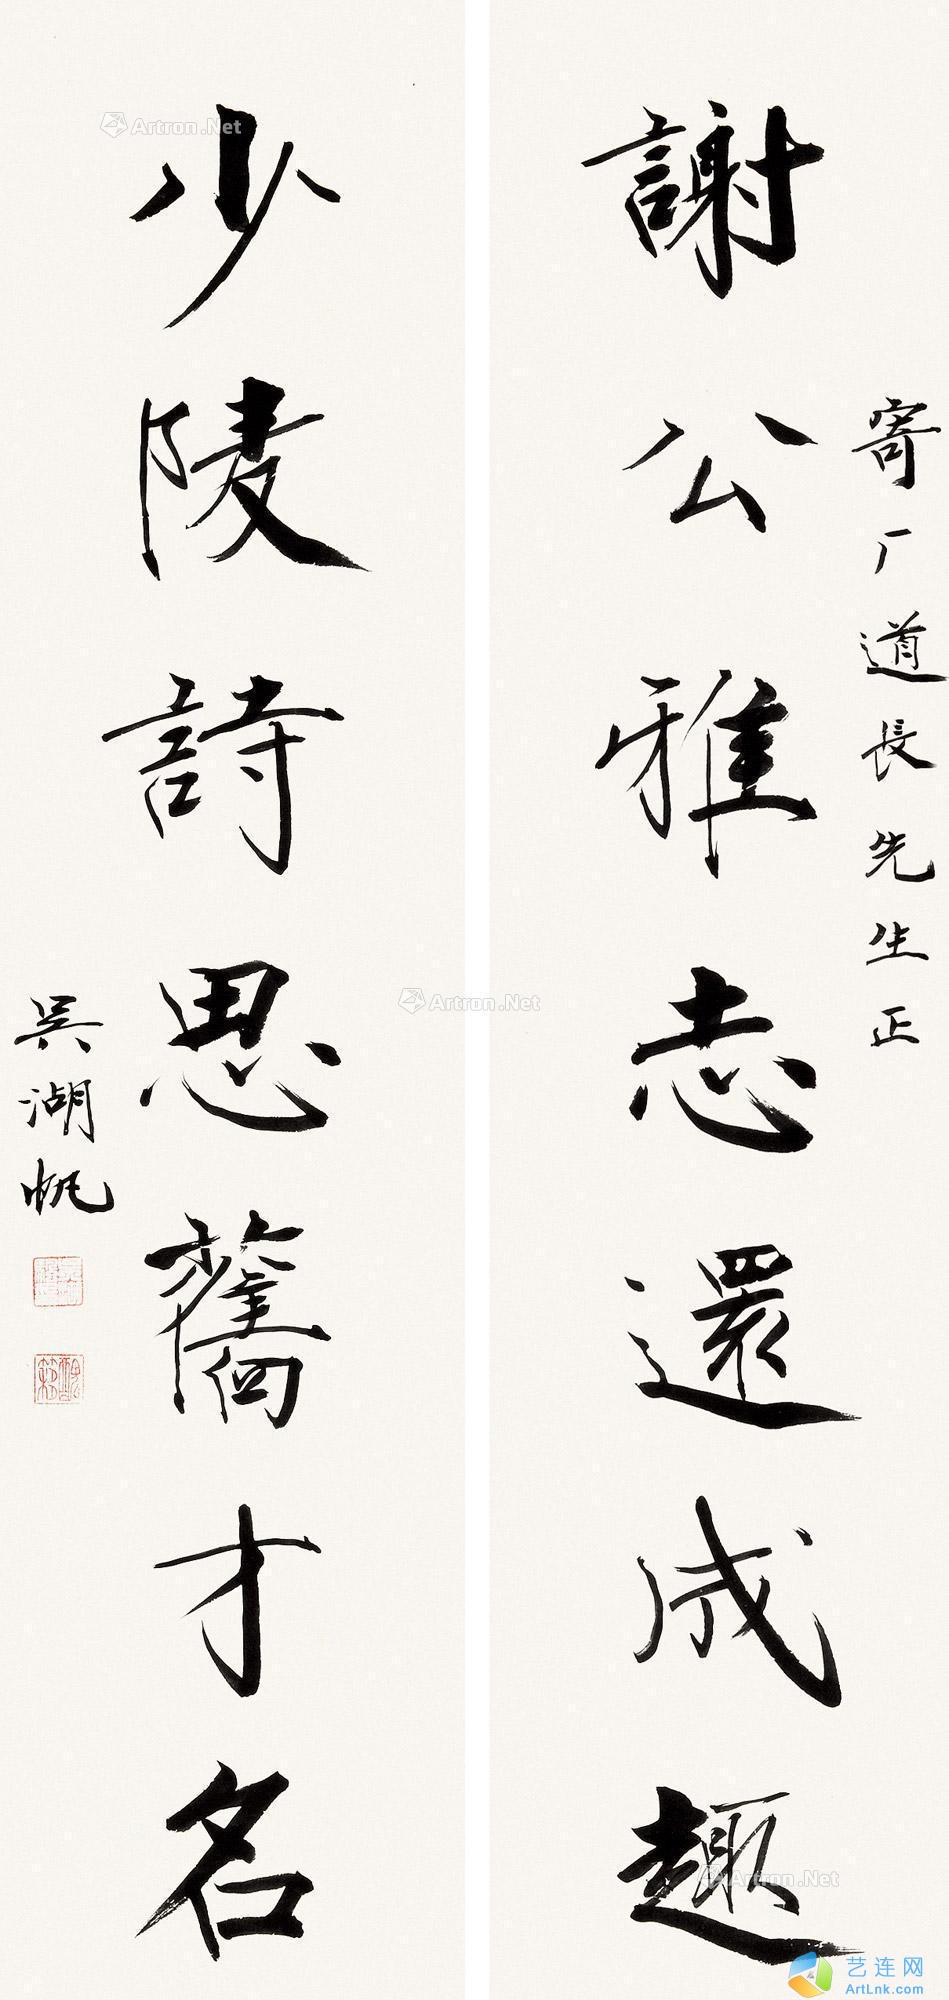 寄厂道長先生正
謝公雅志還成趣
少陵詩思舊才名
吳湖帆
Artron.Net
Artron.Net
Artron.Net
艺连网
ArtLnk.com